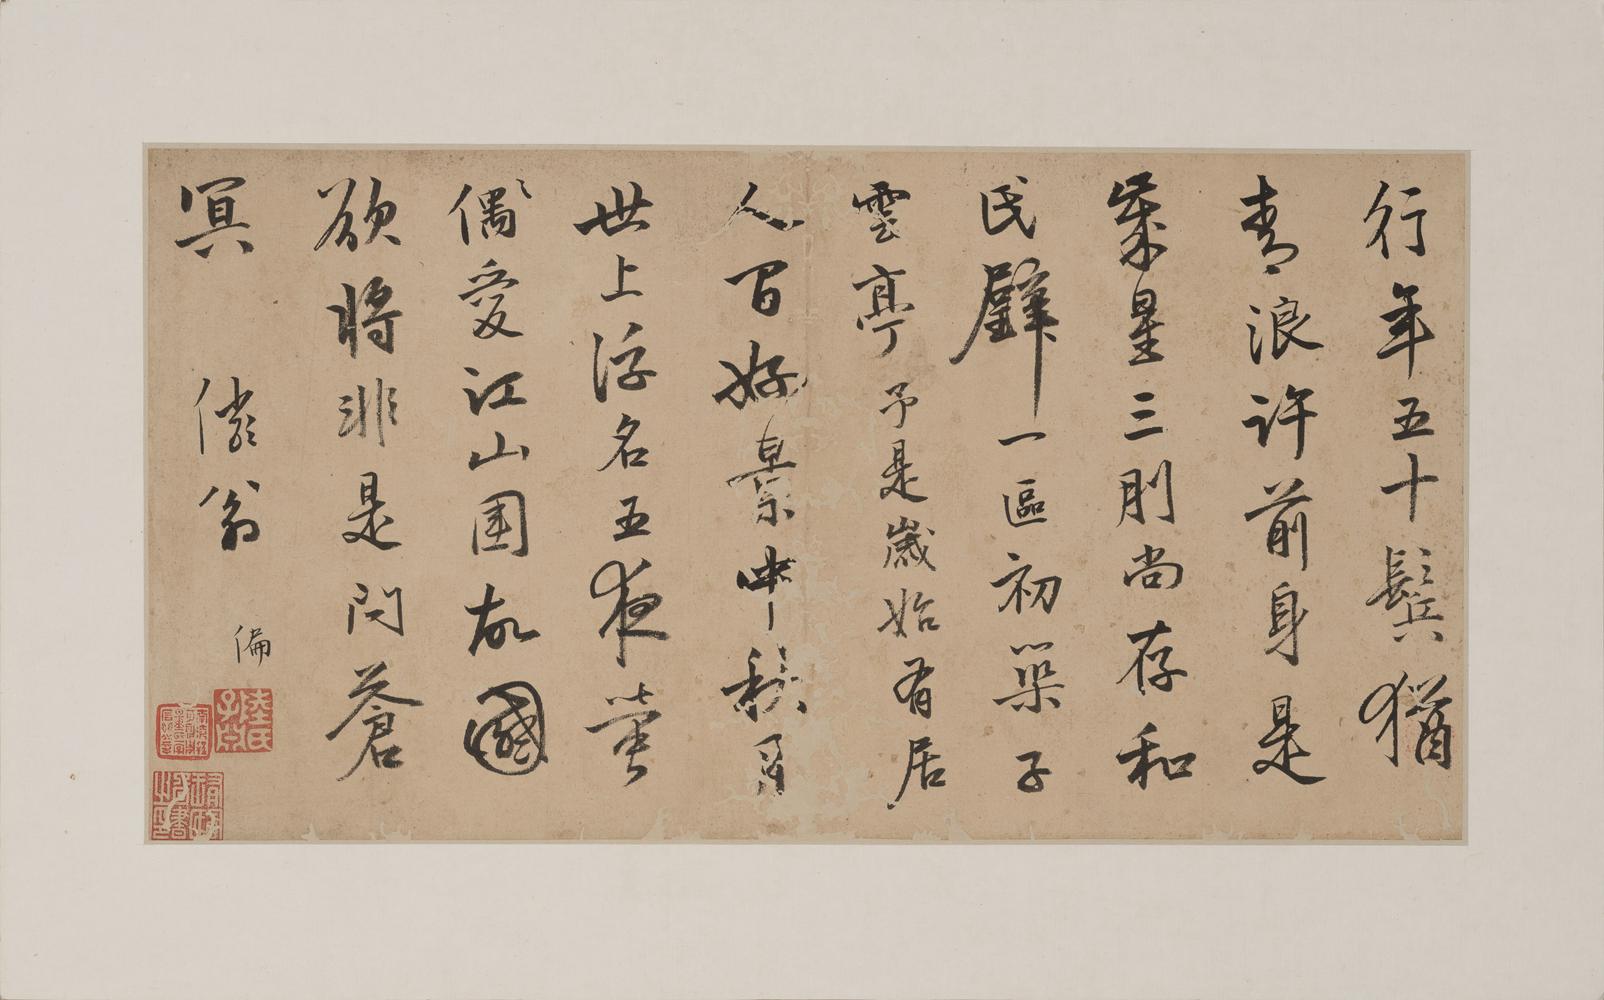 行年五十鬢猶
青浪許前身是
歲星三刖尚存和
氏璧一區初築子
雲亭 予是歲始有居
人間好景中秋月
世上浮名五夜螢
偶愛江山圍故國
欲將非是問蒼
冥 翁
偏